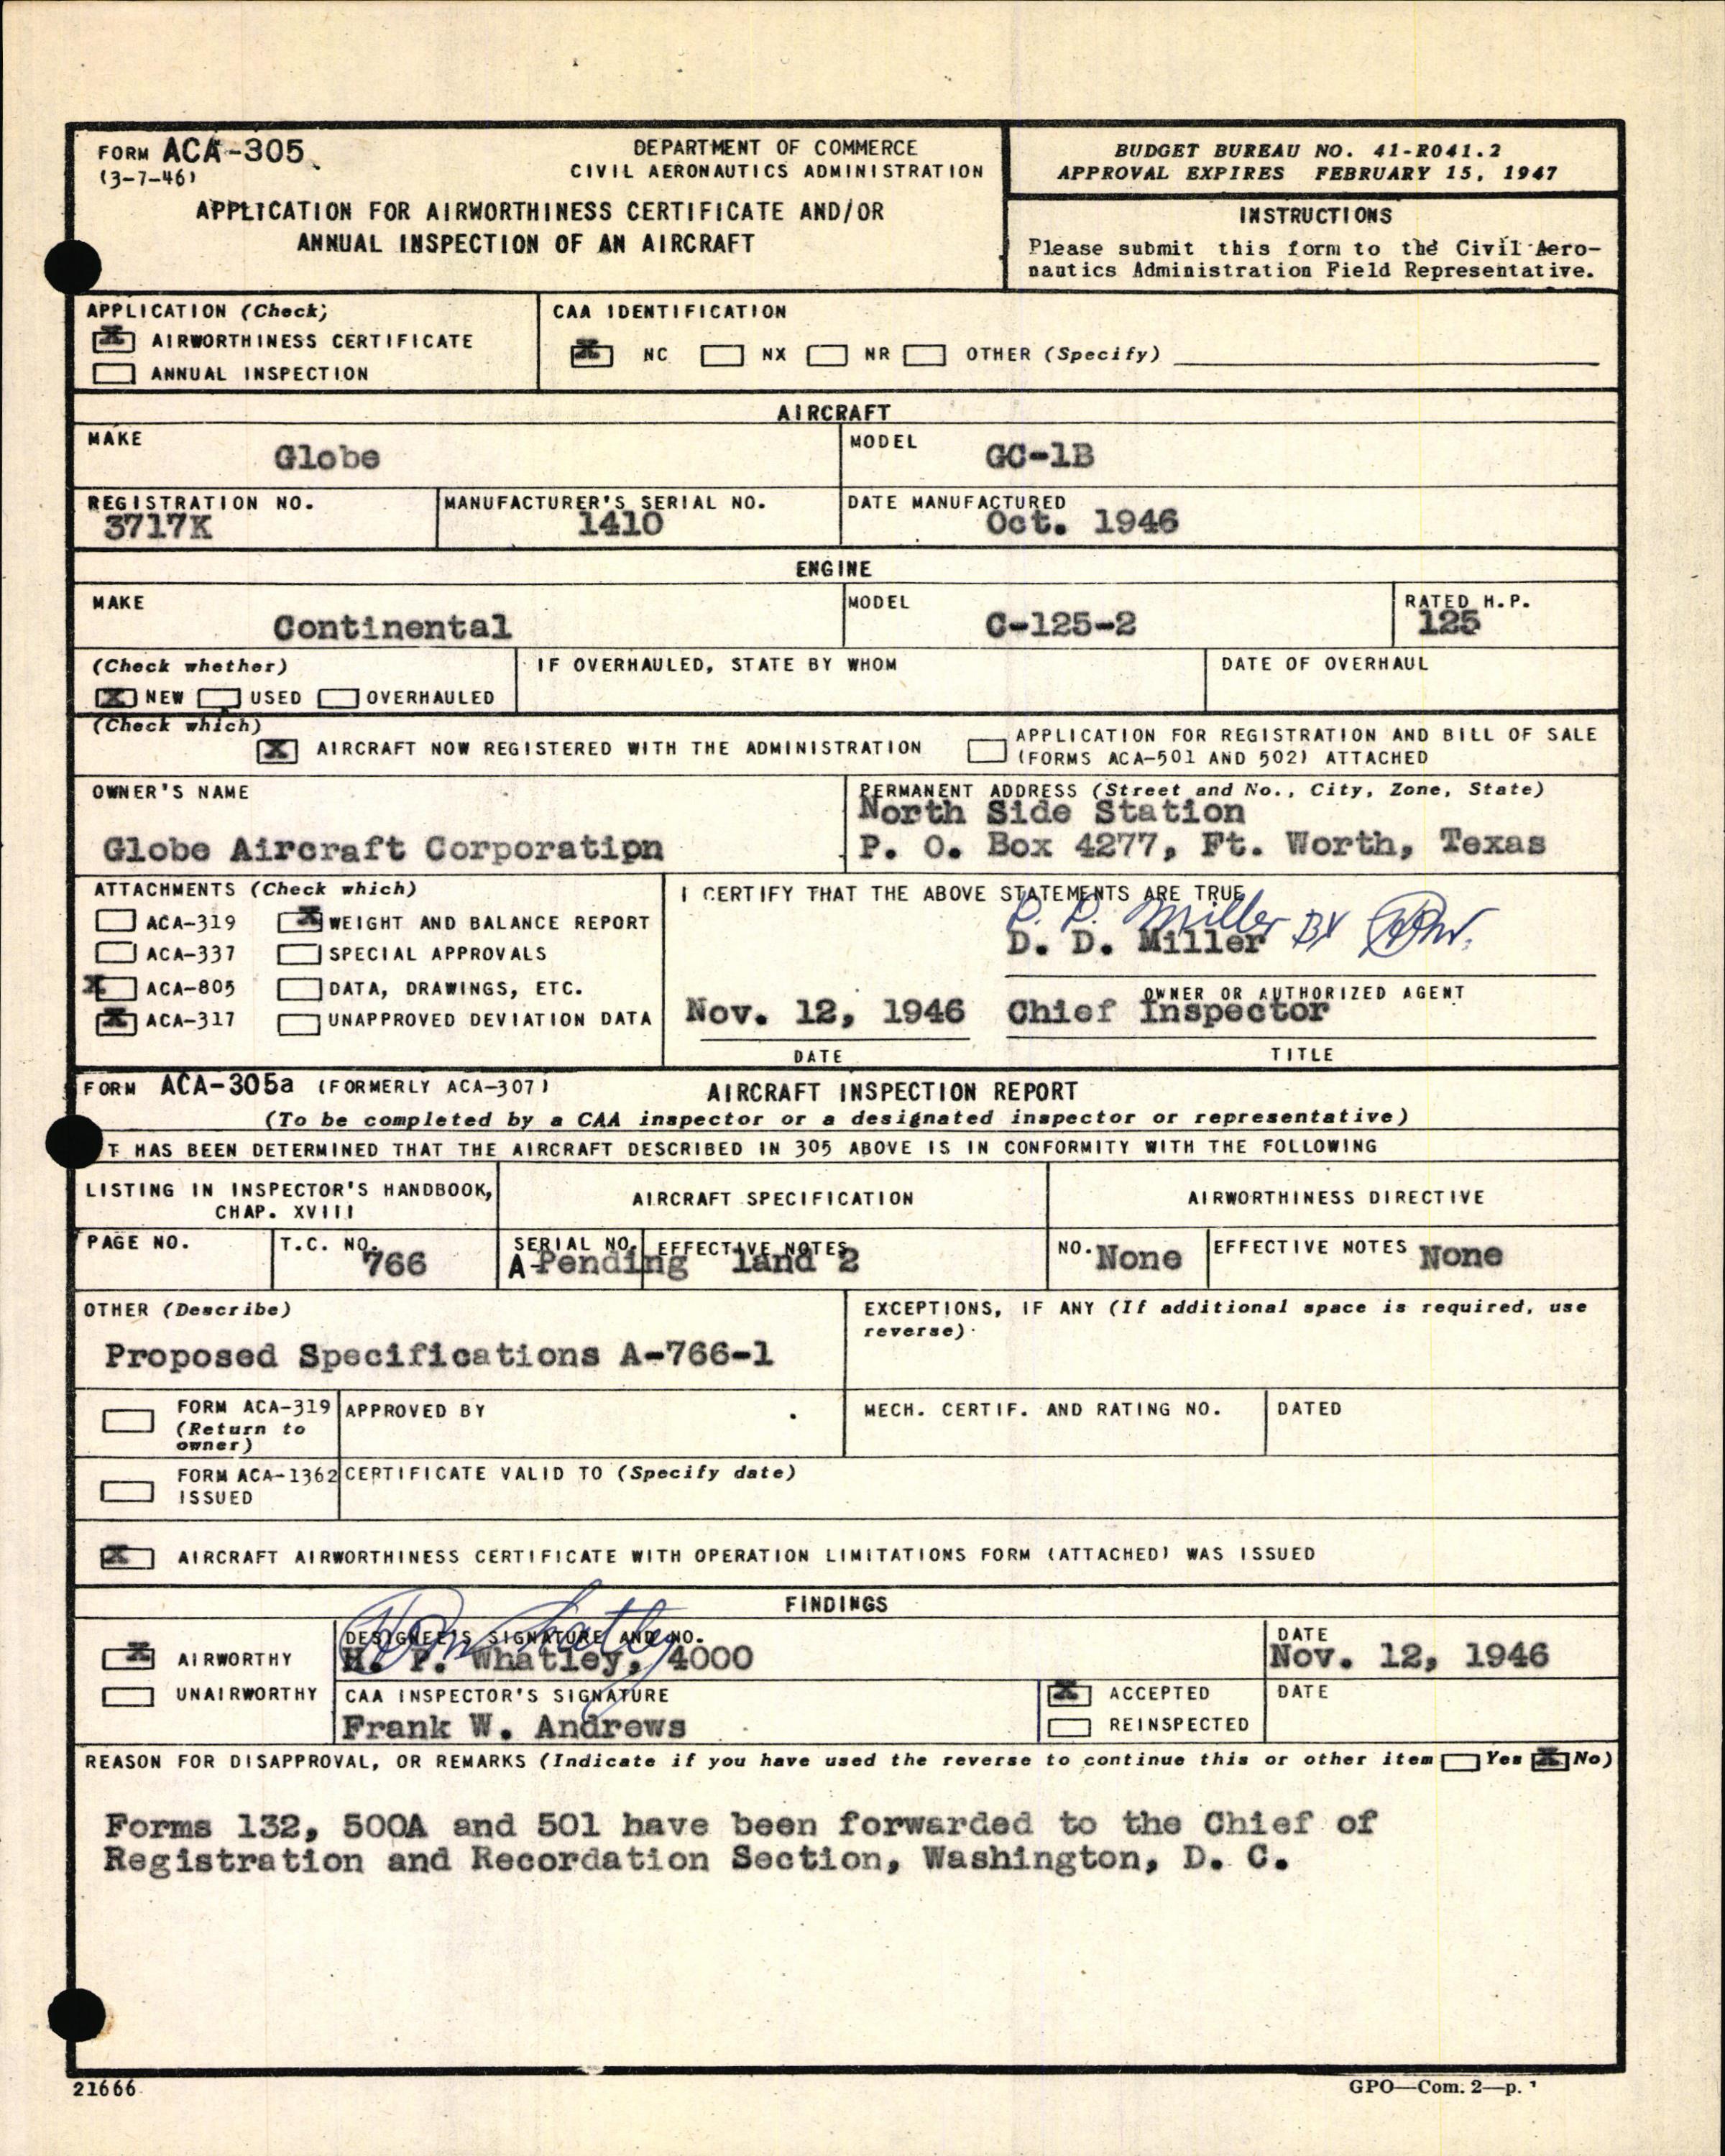 FORM ACA-305
(3-7-46)
DEPARTMENT OF COMMERCE
CIVIL AERONAUTICS ADMINISTRATION
APPLICATION FOR AIRWORTHINESS CERTIFICATE AND/OR
ANNUAL INSPECTION OF AN AIRCRAFT
BUDGET BUREAU NO. 41-R041.2
APPROVAL EXPIRES FEBRUARY 15, 1947
INSTRUCTIONS
Please submit this form to the Civil Aero-
nautics Administration Field Representative.
APPLICATION (Check)
X AIRWORTHINESS CERTIFICATE
ANNUAL INSPECTION
CAA IDENTIFICATION
X NC NX NR OTHER (Specify)
AIRCRAFT
MAKE
Globe
MODEL
GC-1B
REGISTRATION NO.
3717K
MANUFACTURER'S SERIAL NO.
1410
DATE MANUFACTURED
Oct. 1946
ENGINE
MAKE
Continental
MODEL
C-125-2
RATED H.P.
125
(Check whether)
X NEW USED OVERHAULED
IF OVERHAULED, STATE BY WHOM
DATE OF OVERHAUL
(Check which)
X AIRCRAFT NOW REGISTERED WITH THE ADMINISTRATION
APPLICATION FOR REGISTRATION AND BILL OF SALE
(FORMS ACA-501 AND 502) ATTACHED
OWNER'S NAME
Globe Aircraft Corporation
PERMANENT ADDRESS (Street and No., City, Zone, State)
North Side Station
P. O. Box 4277, Ft. Worth, Texas
ATTACHMENTS (Check which)
ACA-319 X WEIGHT AND BALANCE REPORT
ACA-337 SPECIAL APPROVALS
X ACA-805 DATA, DRAWINGS, ETC.
X ACA-317 UNAPPROVED DEVIATION DATA
I CERTIFY THAT THE ABOVE STATEMENTS ARE TRUE
D. D. Miller BY
D. D. Miller
OWNER OR AUTHORIZED AGENT
Nov. 12, 1946 Chief Inspector
DATE TITLE
FORM ACA-305a (FORMERLY ACA-307) AIRCRAFT INSPECTION REPORT
(To be completed by a CAA inspector or a designated inspector or representative)
T HAS BEEN DETERMINED THAT THE AIRCRAFT DESCRIBED IN 305 ABOVE IS IN CONFORMITY WITH THE FOLLOWING
LISTING IN INSPECTOR'S HANDBOOK,
CHAP. XVIII
AIRCRAFT SPECIFICATION
AIRWORTHINESS DIRECTIVE
PAGE NO.
T.C. NO.
766
SERIAL NO. EFFECTIVE NOTES
A-Pending 1and 2
NO. None
EFFECTIVE NOTES None
OTHER (Describe)
Proposed Specifications A-766-1
EXCEPTIONS, IF ANY (If additional space is required, use
reverse)
FORM ACA-319
(Return to
owner)
APPROVED BY
MECH. CERTIF. AND RATING NO.
DATED
FORM ACA-1362
ISSUED
CERTIFICATE VALID TO (Specify date)
X AIRCRAFT AIRWORTHINESS CERTIFICATE WITH OPERATION LIMITATIONS FORM (ATTACHED) WAS ISSUED
FINDINGS
X AIRWORTHY
UNAIRWORTHY
DESIGNEE'S SIGNATURE AND NO.
H. P. Whatley, 4000
DATE
Nov. 12, 1946
CAA INSPECTOR'S SIGNATURE
Frank W. Andrews
X ACCEPTED
REINSPECTED
DATE
REASON FOR DISAPPROVAL, OR REMARKS (Indicate if you have used the reverse to continue this or other item Yes X No)
Forms 132, 500A and 501 have been forwarded to the Chief of
Registration and Recordation Section, Washington, D. C.
21666
GPO—Com. 2—p.